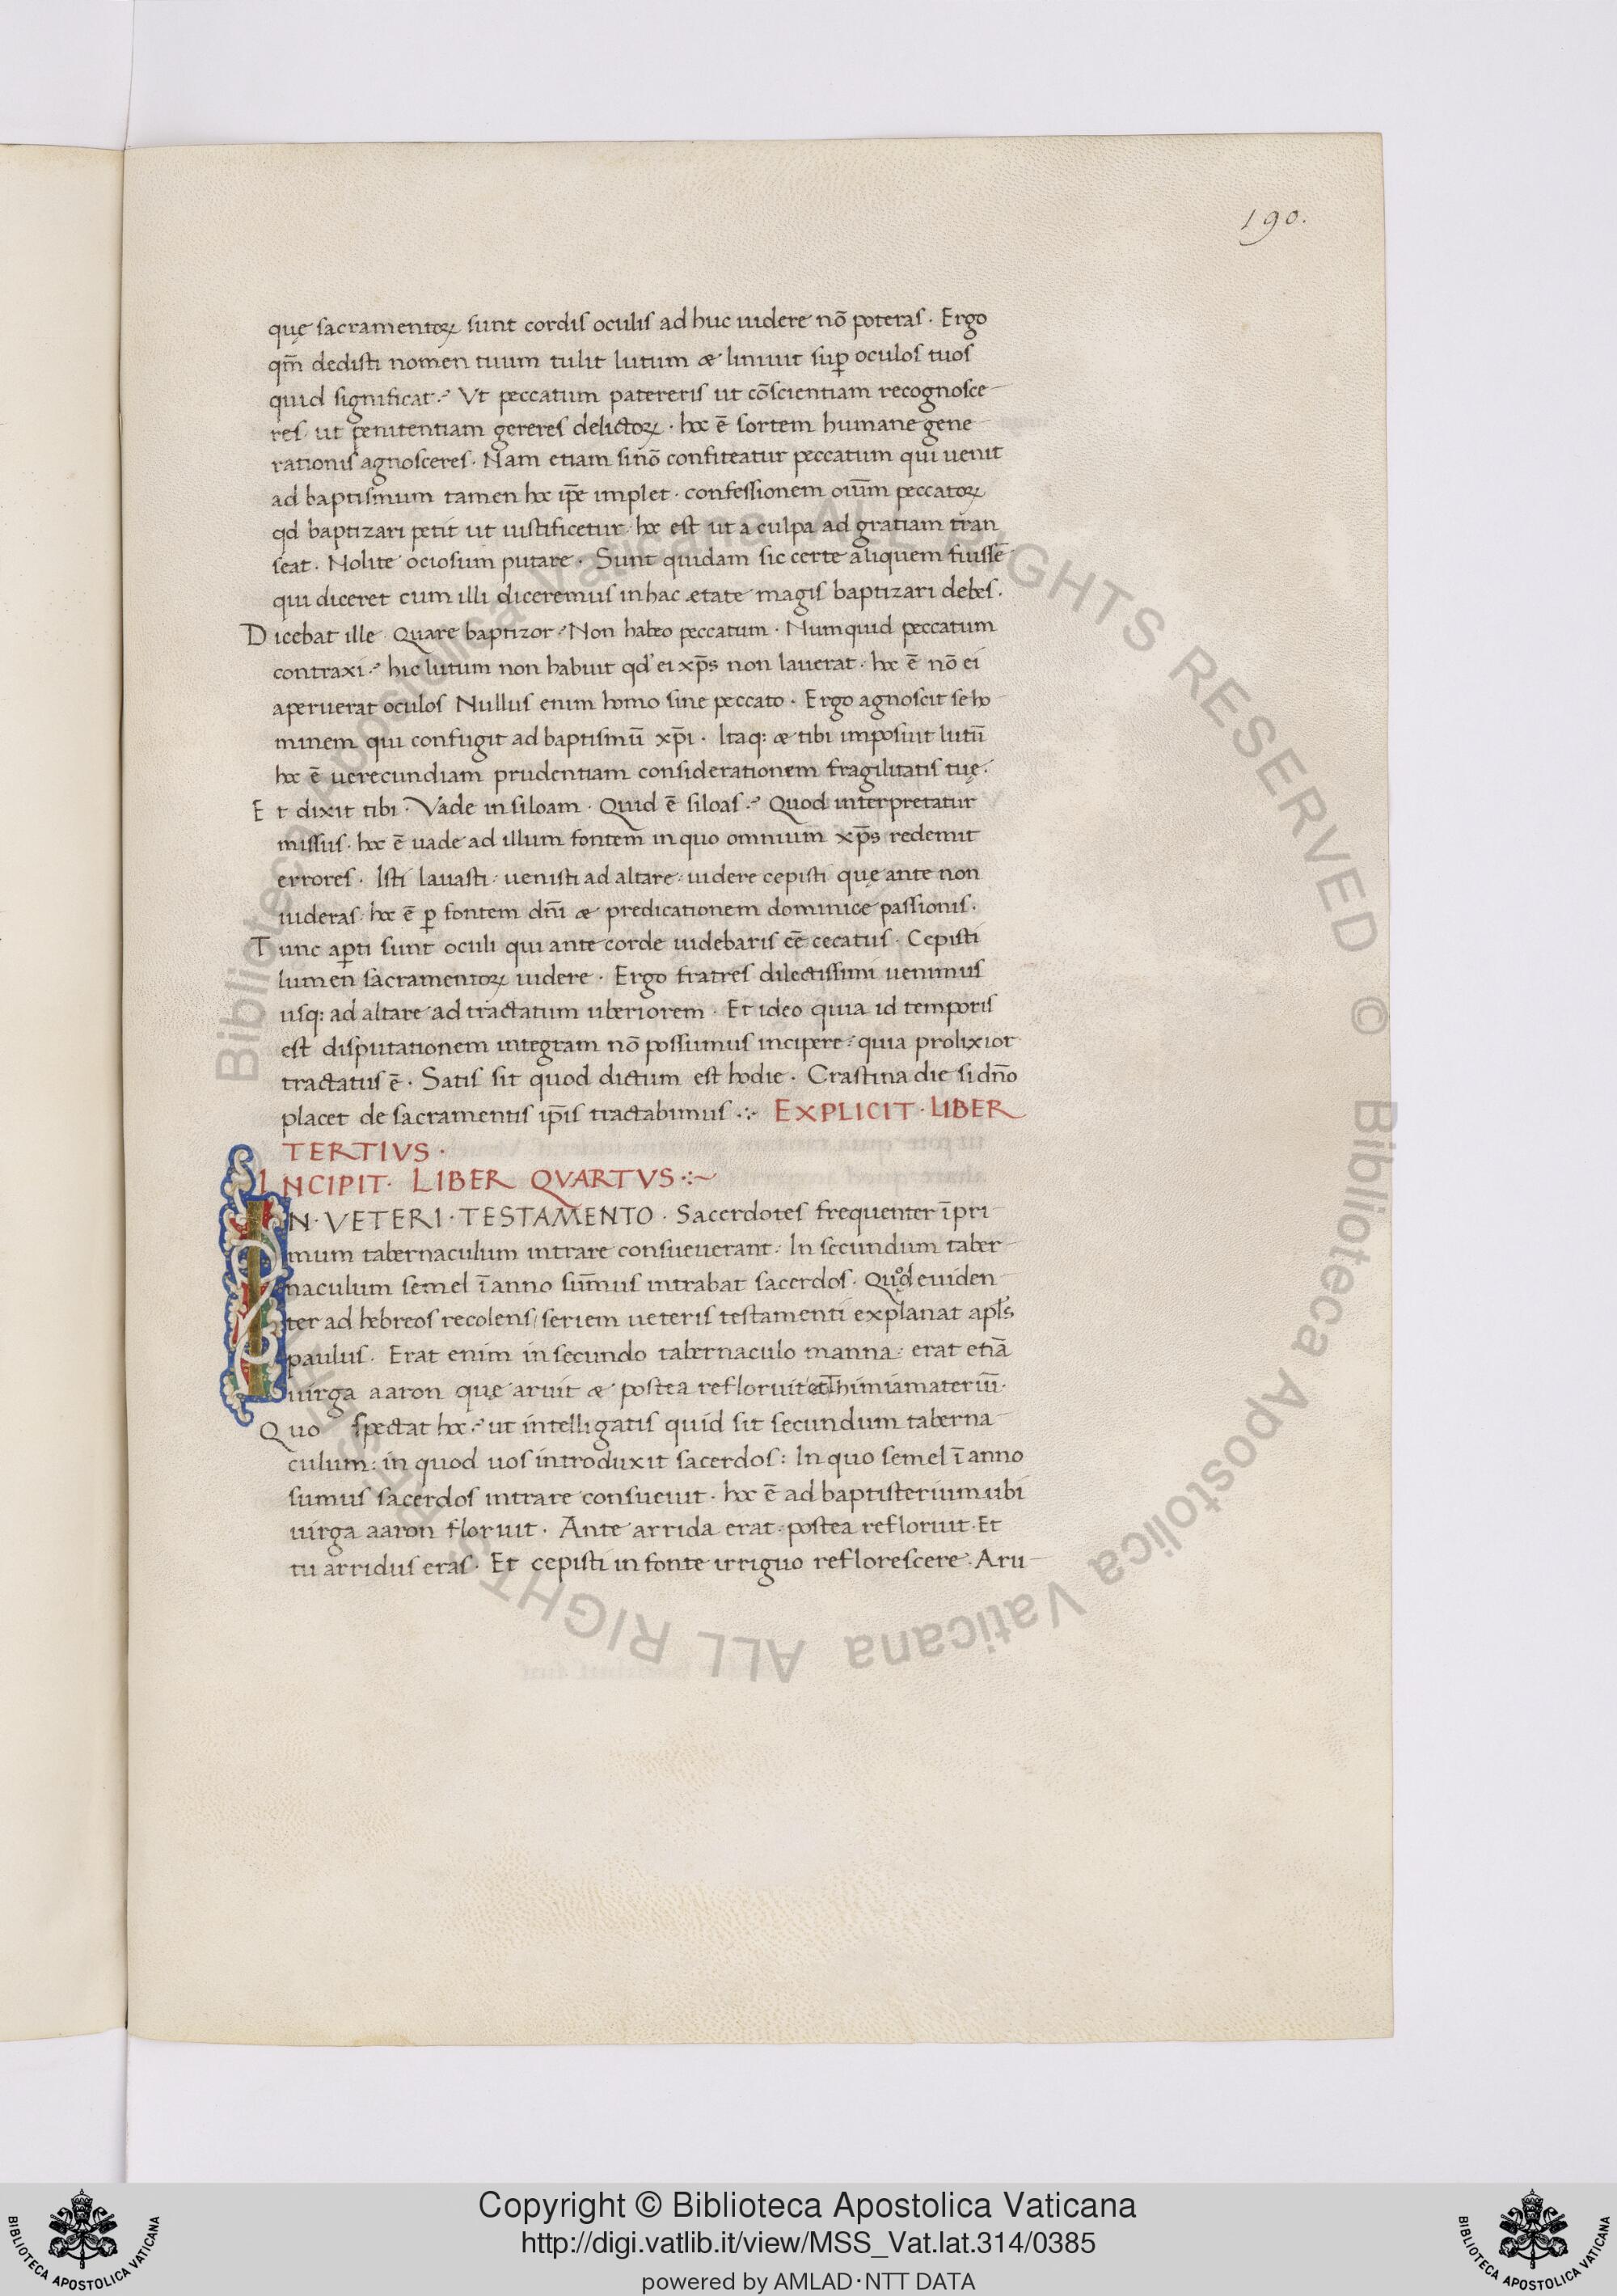 190.
quę sacramentoꝝ sunt cordis oculis ad huc uidere nō poteras · Ergo
qm̄ dedisti nomen tuum tulit lutum & liniuit suꝑ oculos tuos
quid significat? Vt peccatum patereris ut cōscientiam recognosce
res ut penitentiam gereres delictoꝝ · hoc ē sortem humane gene
rationis agnosceres · Nam etiam si nō confiteatur peccatum qui uenit
ad baptismum tamen hoc ip̄e implet · confessionem oium̄ peccatoꝝ
qd baptizari petit ut iustificetur · hoc est ut a culpa ad gratiam tran
seat · Nolite ociosum putare · Sunt quidam sic certe aliquem fuissē
qui diceret cum illi diceremus in hac ętate magis baptizari debes ·
Dicebat ille · Quare baptizor? Non habeo peccatum · Numquid peccatum
contraxi? hic lutum non habuit qd' ei xp̄s non lauerat · hoc ē nō ei
aperuerat oculos Nullus enim homo sine peccato · Ergo agnoscit se ho
minem qui confugit ad baptismū xp̄i · Itaq: & tibi imposuit lutū
hoc ē uerecundiam prudentiam considerationem fragilitatis tuę ·
Et dixit tibi · Vade in siloam · Quid ē siloas? Quod interpretatur
missus · hoc ē uade ad illum fontem in quo omnium xp̄s redemit
errores · Isti lauasti : uenisti ad altare : uidere cepisti quę ante non
uideras · hoc ē ꝑ fontem dn̄i & predicationem dominice passionis ·
Tunc aꝑti sunt oculi qui ante corde uidebaris eē cecatus · Cepisti
lumen sacramentoꝝ uidere · Ergo fratres dilectissimi uenimus
usq: ad altare ad tractatum uberiorem · Et ideo quia id temporis
est disputationem integram nō possumus incipere : quia prolixior
tractatus ē · Satis sit quod dictum est hodie · Crastina die si dn̄o
placet de sacramentis ip̄is tractabimus ·:· EXPLICIT · LIBER
TERTIVS ·
INCIPIT · LIBER QVARTVS ·:~
IN · VETERI · TESTAMENTO · Sacerdotes frequenter ī pri
mum tabernaculum intrare consueuerant : In secundum taber
naculum semel ī anno sum̄us intrabat sacerdos · Quod euiden
ter ad hebreos recolens / seriem ueteris testamenti explanat apl̄s
paulus · Erat enim in secundo tabernaculo manna : erat etiā
uirga aaron quę aruit & postea refloruit et Thimiamateriū ·
Quo spectat hoc? ut intelligatis quid sit secundum taberna
culum : in quod uos introduxit sacerdos : In quo semel ī anno
sumus sacerdos intrare consueuit · hoc ē ad baptisterium ubi
uirga aaron floruit · Ante arrida erat : postea refloruit · Et
tu arridus eras · Et cepisti in fonte irriguo reflorescere · Aru
Biblioteca Apostolica Vaticana ALL RIGHTS RESERVED © Biblioteca Apostolica Vaticana ALL RIGHTS RESERVED ©
Copyright © Biblioteca Apostolica Vaticana
http://digi.vatlib.it/view/MSS_Vat.lat.314/0385
powered by AMLAD·NTT DATA
BIBLIOTECA APOSTOLICA VATICANA
BIBLIOTECA APOSTOLICA VATICANA